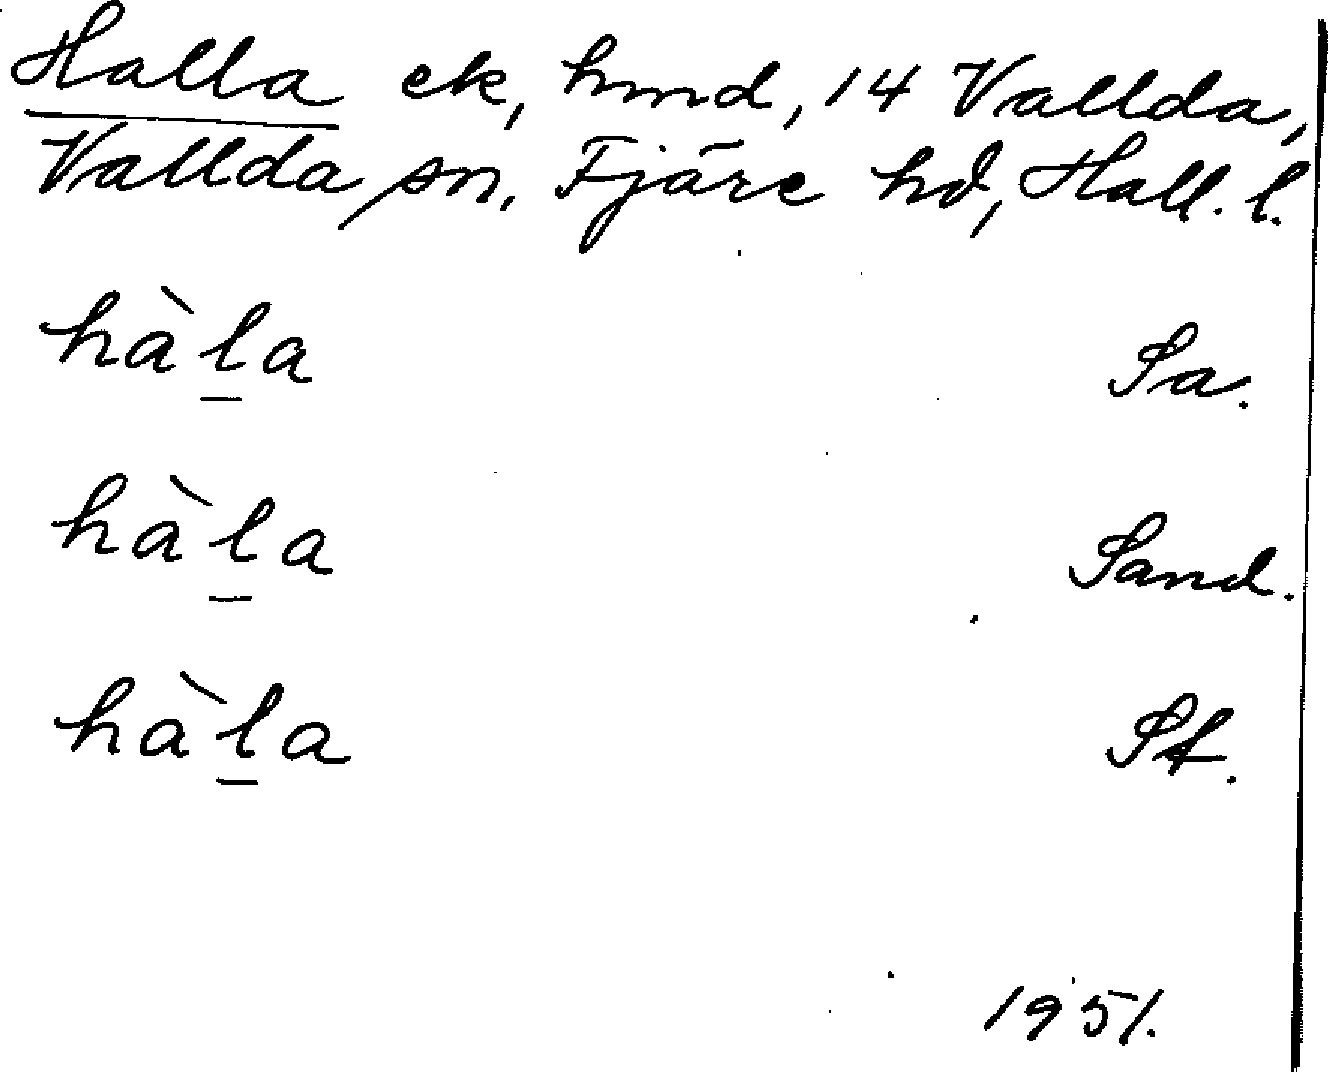 Halla ek, hmd, 14 Vallda,
Vallda sn, Fjäre hd, Hall. l.
hàl̲a Sa.
hàl̲a Sand.
hàl̲a St.
1951.